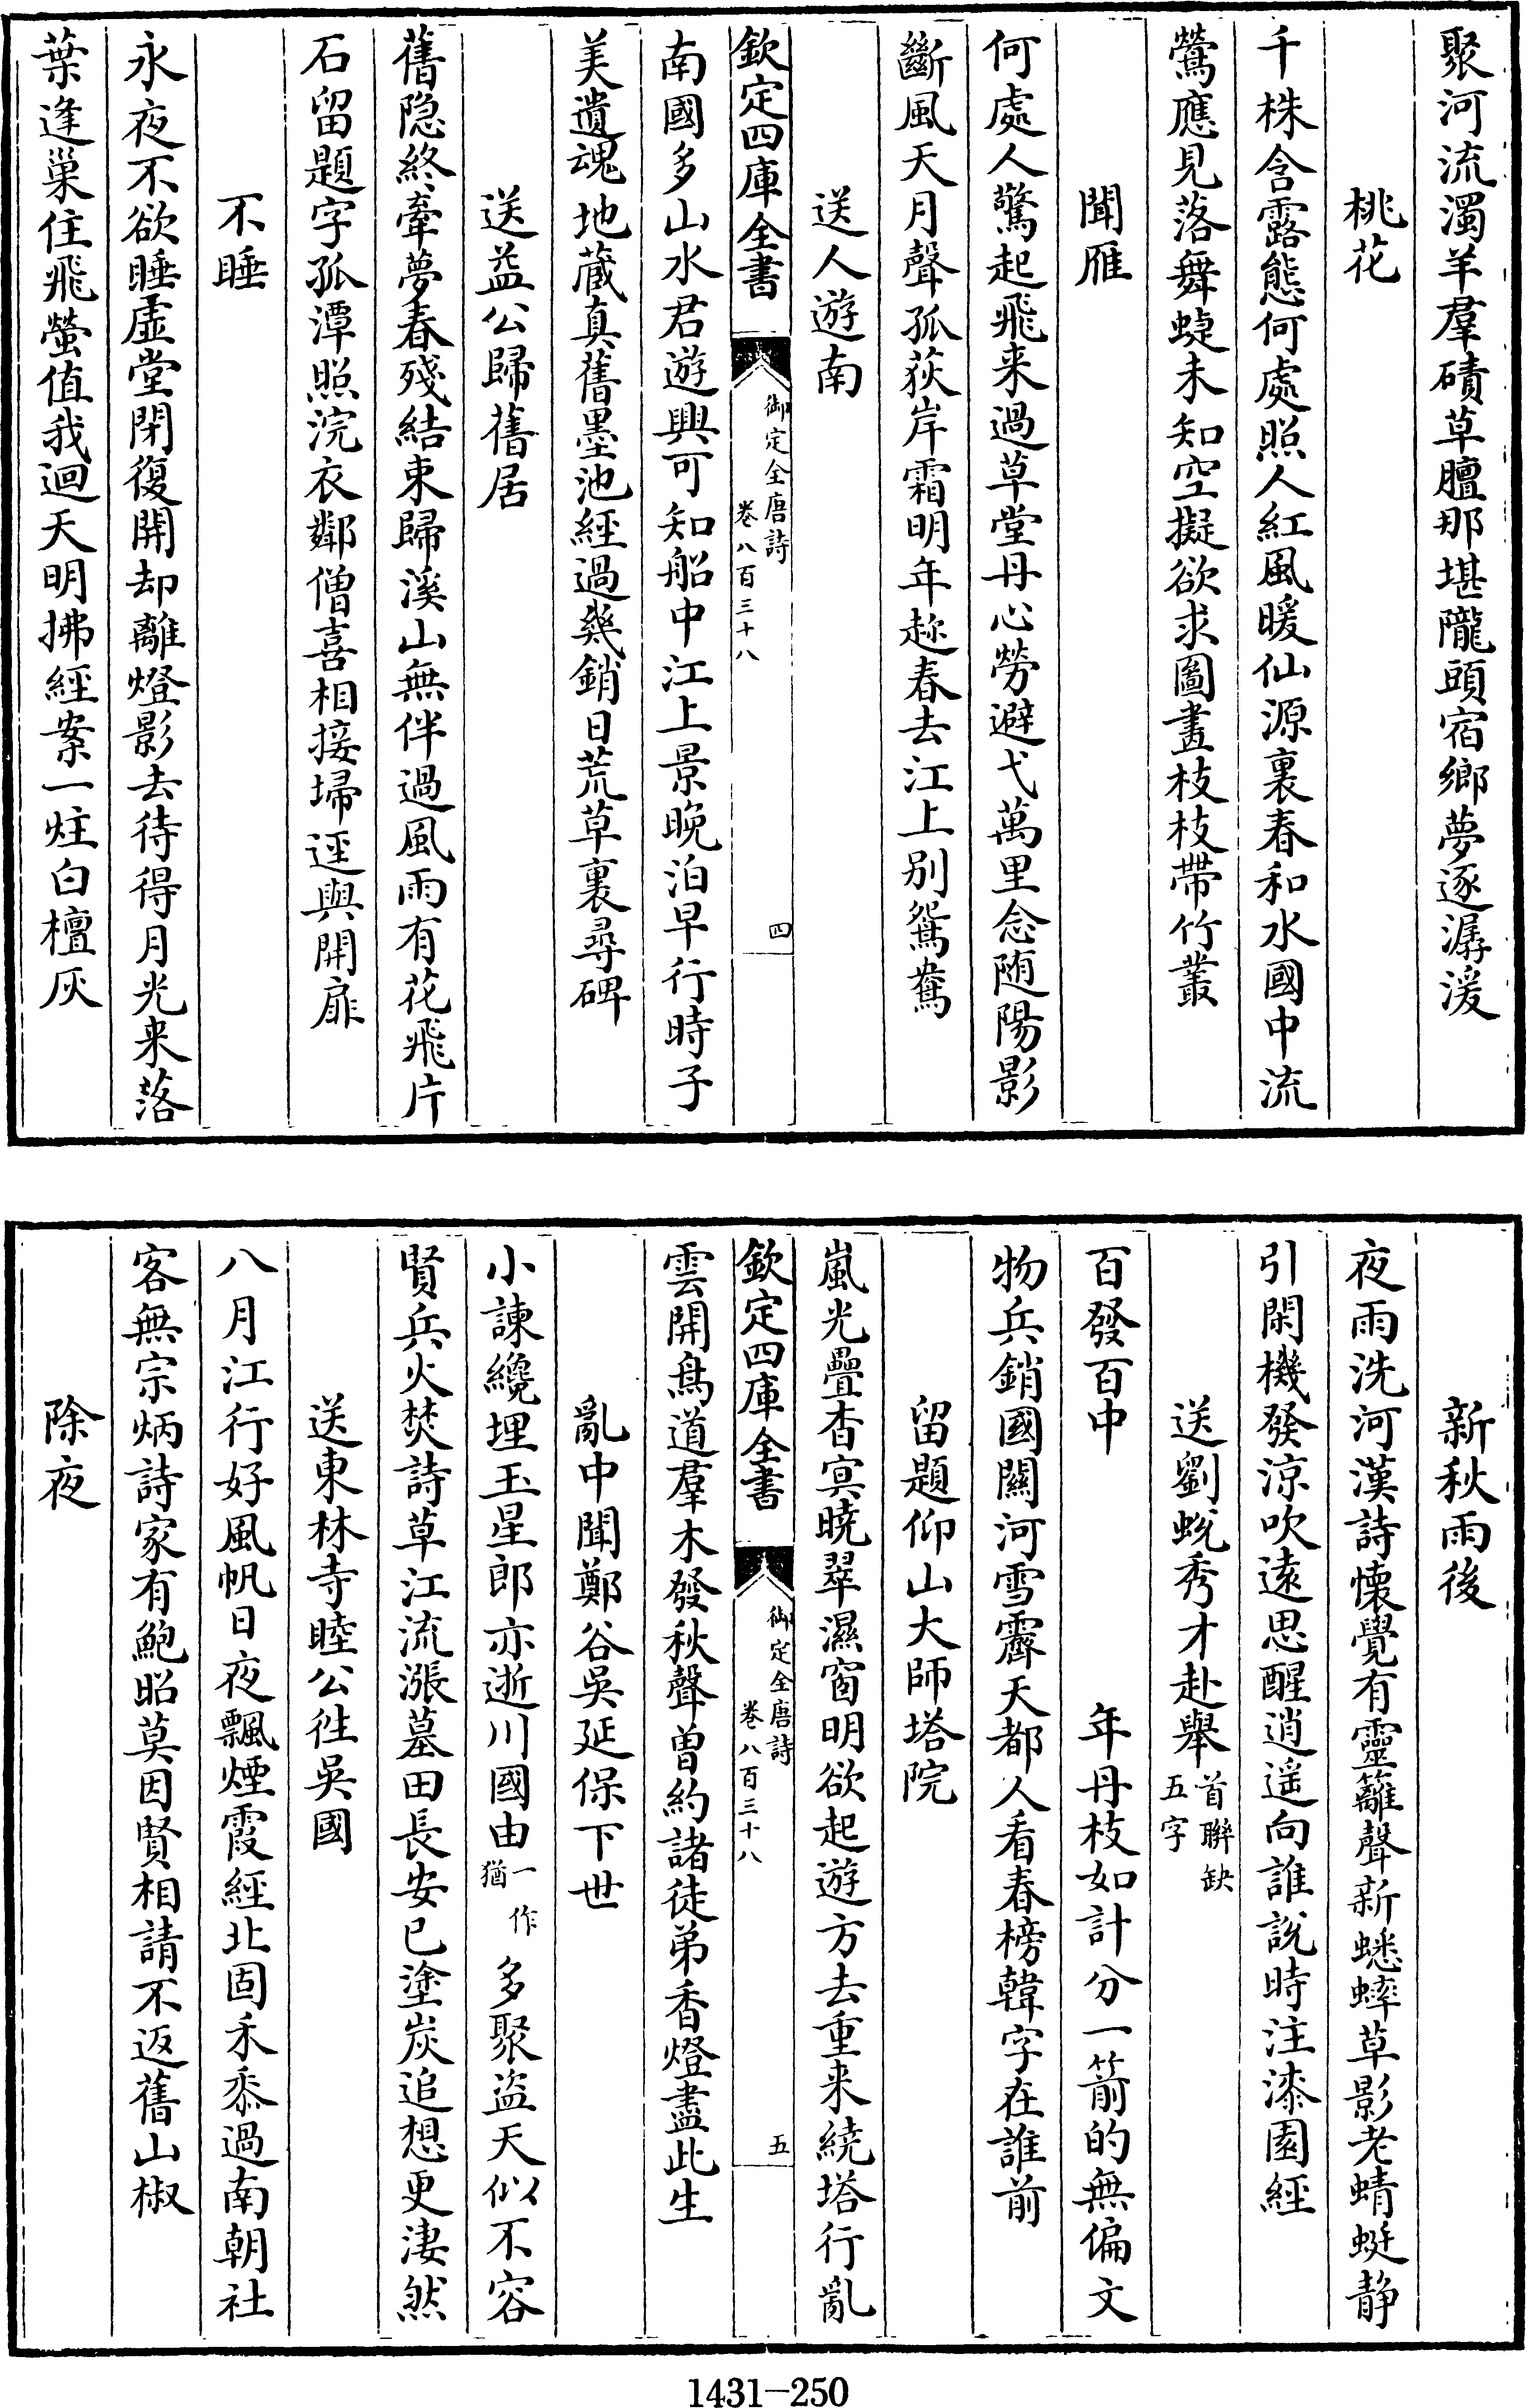 聚河流濁羊羣磧草膻那堪隴頭宿鄉夢逐潺湲
桃花
千株含露態何處照人紅風暖仙源裏春和水國中流
鶯應見落舞蜨未知空擬欲求圖畫枝枝帶竹叢
聞雁
何處人驚起飛来過草堂丹心勞避弋萬里念随陽影
斷風天月聲孤荻岸霜明年趂春去江上别鴛鴦
送人遊南
欽定四庫全書
御定全唐詩
卷八百三十八
四
南國多山水君遊興可知船中江上景晚泊早行時子
美遺魂地蔵真舊墨池經過幾銷日荒草裏尋碑
送益公歸舊居
舊隐終牽夢春殘結束歸溪山無伴過風雨有花飛片
石留題字孤潭照浣衣鄰僧喜相接埽逕與開扉
不睡
永夜不欲睡虛堂閉復開却離燈影去待得月光来落
葉逢巢住飛螢值我迴天明拂經案一炷白檀灰
新秋雨後
夜雨洗河漢詩懐覺有靈籬聲新蟋蟀草影老蜻蜓静
引閑機發涼吹遠思醒逍遥向誰說時注漆園經
送劉蛻秀才赴舉首聯缺
五字
百發百中 年丹枝如計分一箭的無偏文
物兵銷國關河雪霽天都人看春榜韓字在誰前
留題仰山大師塔院
嵐光疊杳冥曉翠濕窗明欲起遊方去重来繞塔行亂
欽定四庫全書
御定全唐詩
卷八百三十八
五
雲開鳥道羣木發秋聲曽約諸徒弟香燈盡此生
亂中聞鄭谷吳延保下世
小諫纔埋玉星郎亦逝川國由一作
猶多聚盗天似不容
賢兵火焚詩草江流漲墓田長安已塗炭追想更淒然
送東林寺睦公徃吳國
八月江行好風帆日夜飄煙霞經北固禾黍過南朝社
客無宗炳詩家有鮑昭莫因賢相請不返舊山椒
除夜
1431-250